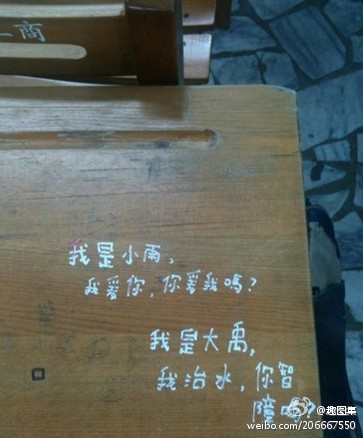 二商
我是小雨,
我爱你,你爱我嗎?
我是大禹,
我治水,你智
障嗎?
@趣图集
weibo.com/206667550